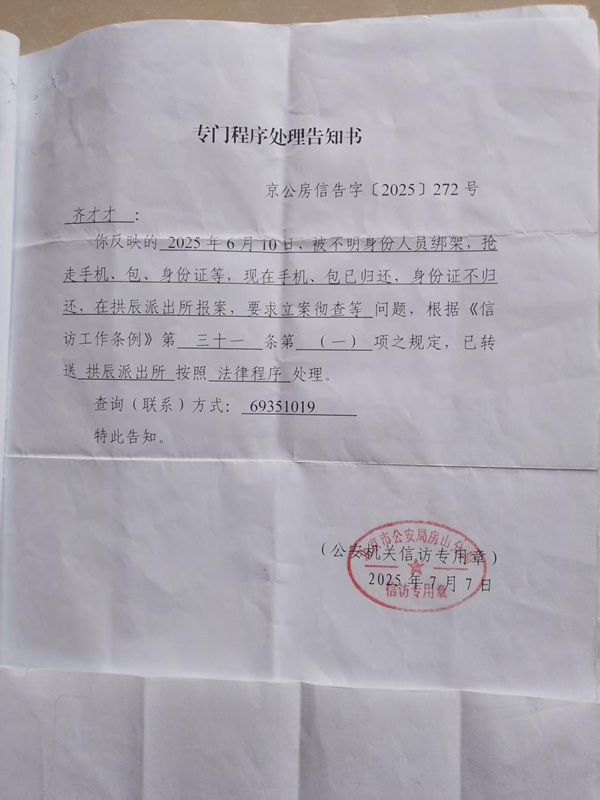 专门程序处理告知书
京公房信告字〔2025〕272号
齐才才：
你反映的 2025年6月10日，被不明身份人员绑架，抢
走手机、包、身份证等，现在手机、包已归还，身份证不归
还，在拱辰派出所报案，要求立案彻查等 问题，根据《信
访工作条例》第 三十一 条第 （一） 项之规定，已转
送 拱辰派出所 按照 法律程序 处理。
查询（联系）方式：69351019
特此告知。
北京市公安局房山分局
（公安机关信访专用章）
2025年7月7日
信访专用章